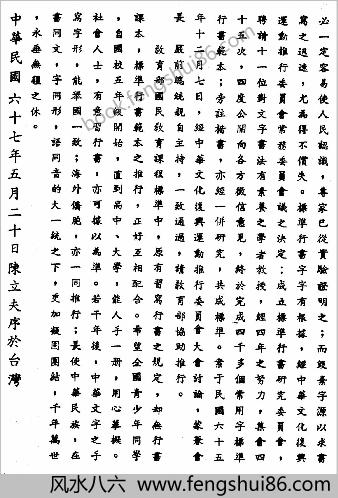 必一定容易使人民認識，專家已從實驗證明之；而毀棄字源以求書
寫之迅速，尤為得不償失。標準行書字字有根據，經中華文化復興
運動推行委員會常務委員會議之決定；成立標準行書研究委員會，
聘請十一位對文字書法有素養之學者教授，經四年之努力，集會四
十五次，四度公開向各方徵信意見，終於完成四千多個常用字標準
行書範本；旁註楷書，亦經一併研究，共成標準。書于民國六十五
年十二月七日，經中華文化復興運動推行委員會大會討論，蒙兼會
長 嚴前總統親自主持，一致通過，請教育部協助推行。
教育部國民教育課程標準中，原有習寫行書之規定，如無行書
課本，標準行書範本之推行，正好互相配合。希望全國青少年同學
，自國校五年級開始，直到高中、大學，能人手一冊，用心摹擬。
社會人士，有意習行書，亦可據以為準。若干年後，中華文字之手
寫字形，能舉國一致；海外僑胞，亦一同推行；長使中華民族，在
書同文，字同形，語同音的大一統之下，更加凝固團結，千年萬世
，永垂無疆之休。
中華民國六十七年五月二十日陳立夫序於台灣
book.fengshui86.com
风水八六 - fengshui86.com